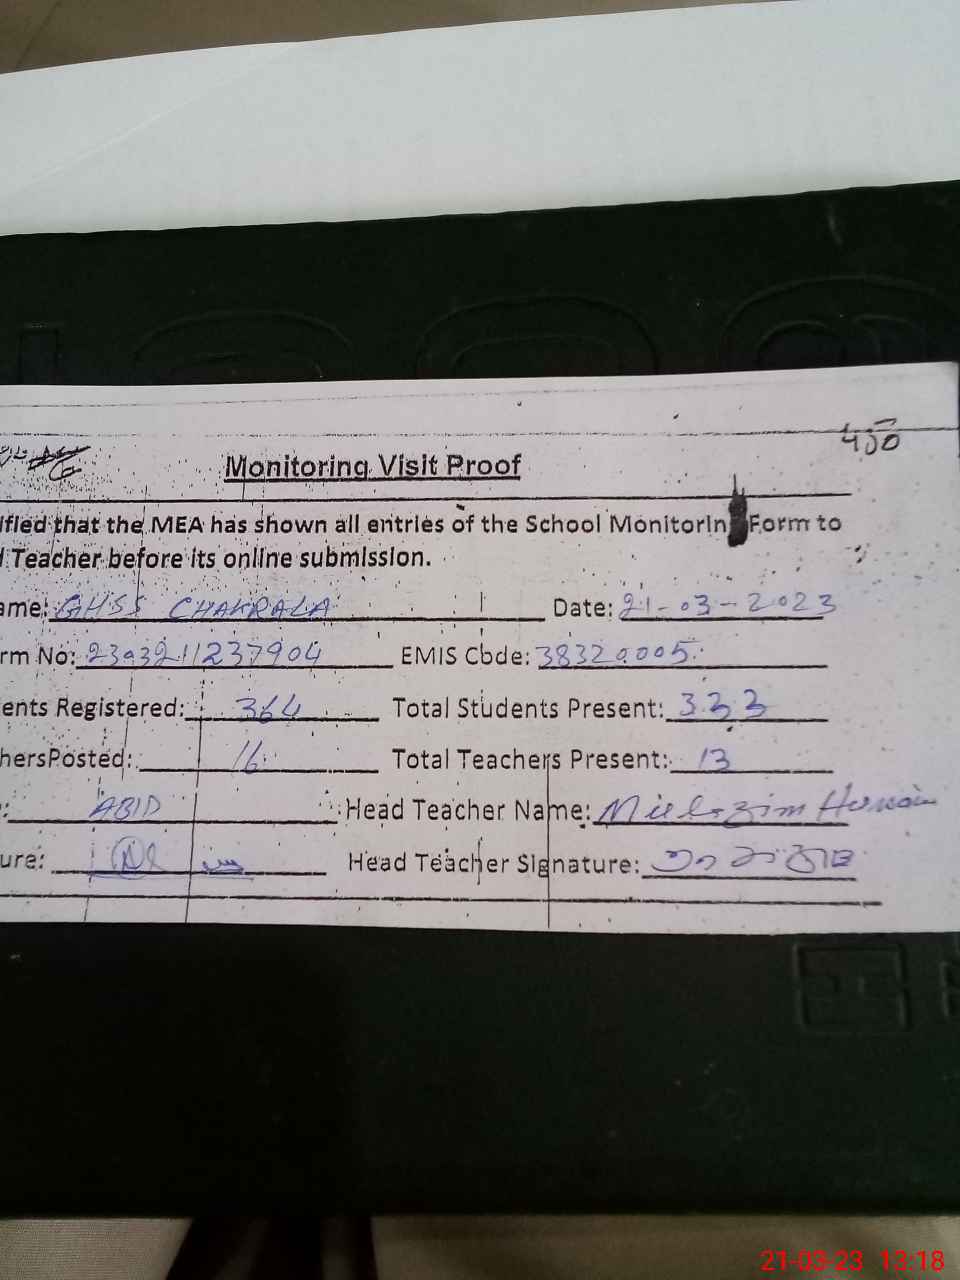 450
Monitoring Visit Proof
ified that the MEA has shown all entries of the School Monitorin Form to
Teacher before its online submission.
ame: GHSS CHAKRALA Date: 21-03-2023
rm No: 2303211237904 EMIS Code: 38320005
ents Registered: 364 Total Students Present: 333
hersPosted: 16 Total Teachers Present: 13
: ABID Head Teacher Name: Hussain
ure: Head Teacher Signature:
21-03-23 13:18